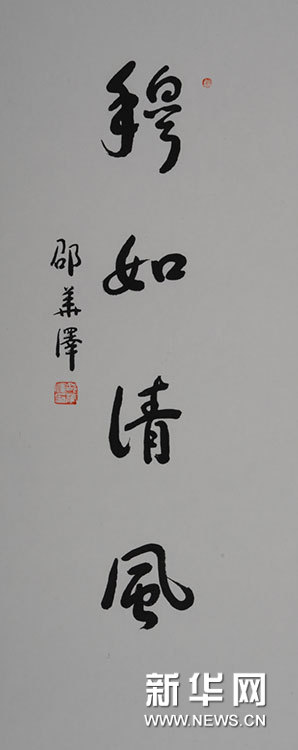 穆如清風
邵華澤
新华网
WWW.NEWS.CN